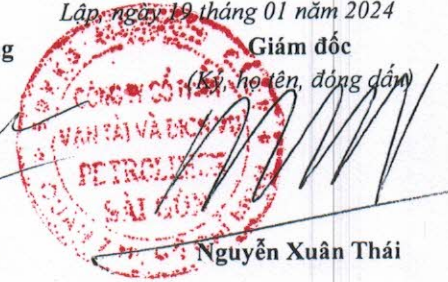 Lập, ngày 19 tháng 01 năm 2024
g
Giám đốc
(Ký, họ tên, đóng dấu)
CÔNG TY CỔ PHẦN
VẬN TẢI VÀ DỊCH VỤ
PETROLIMEX
SÀI GÒN
Nguyễn Xuân Thái